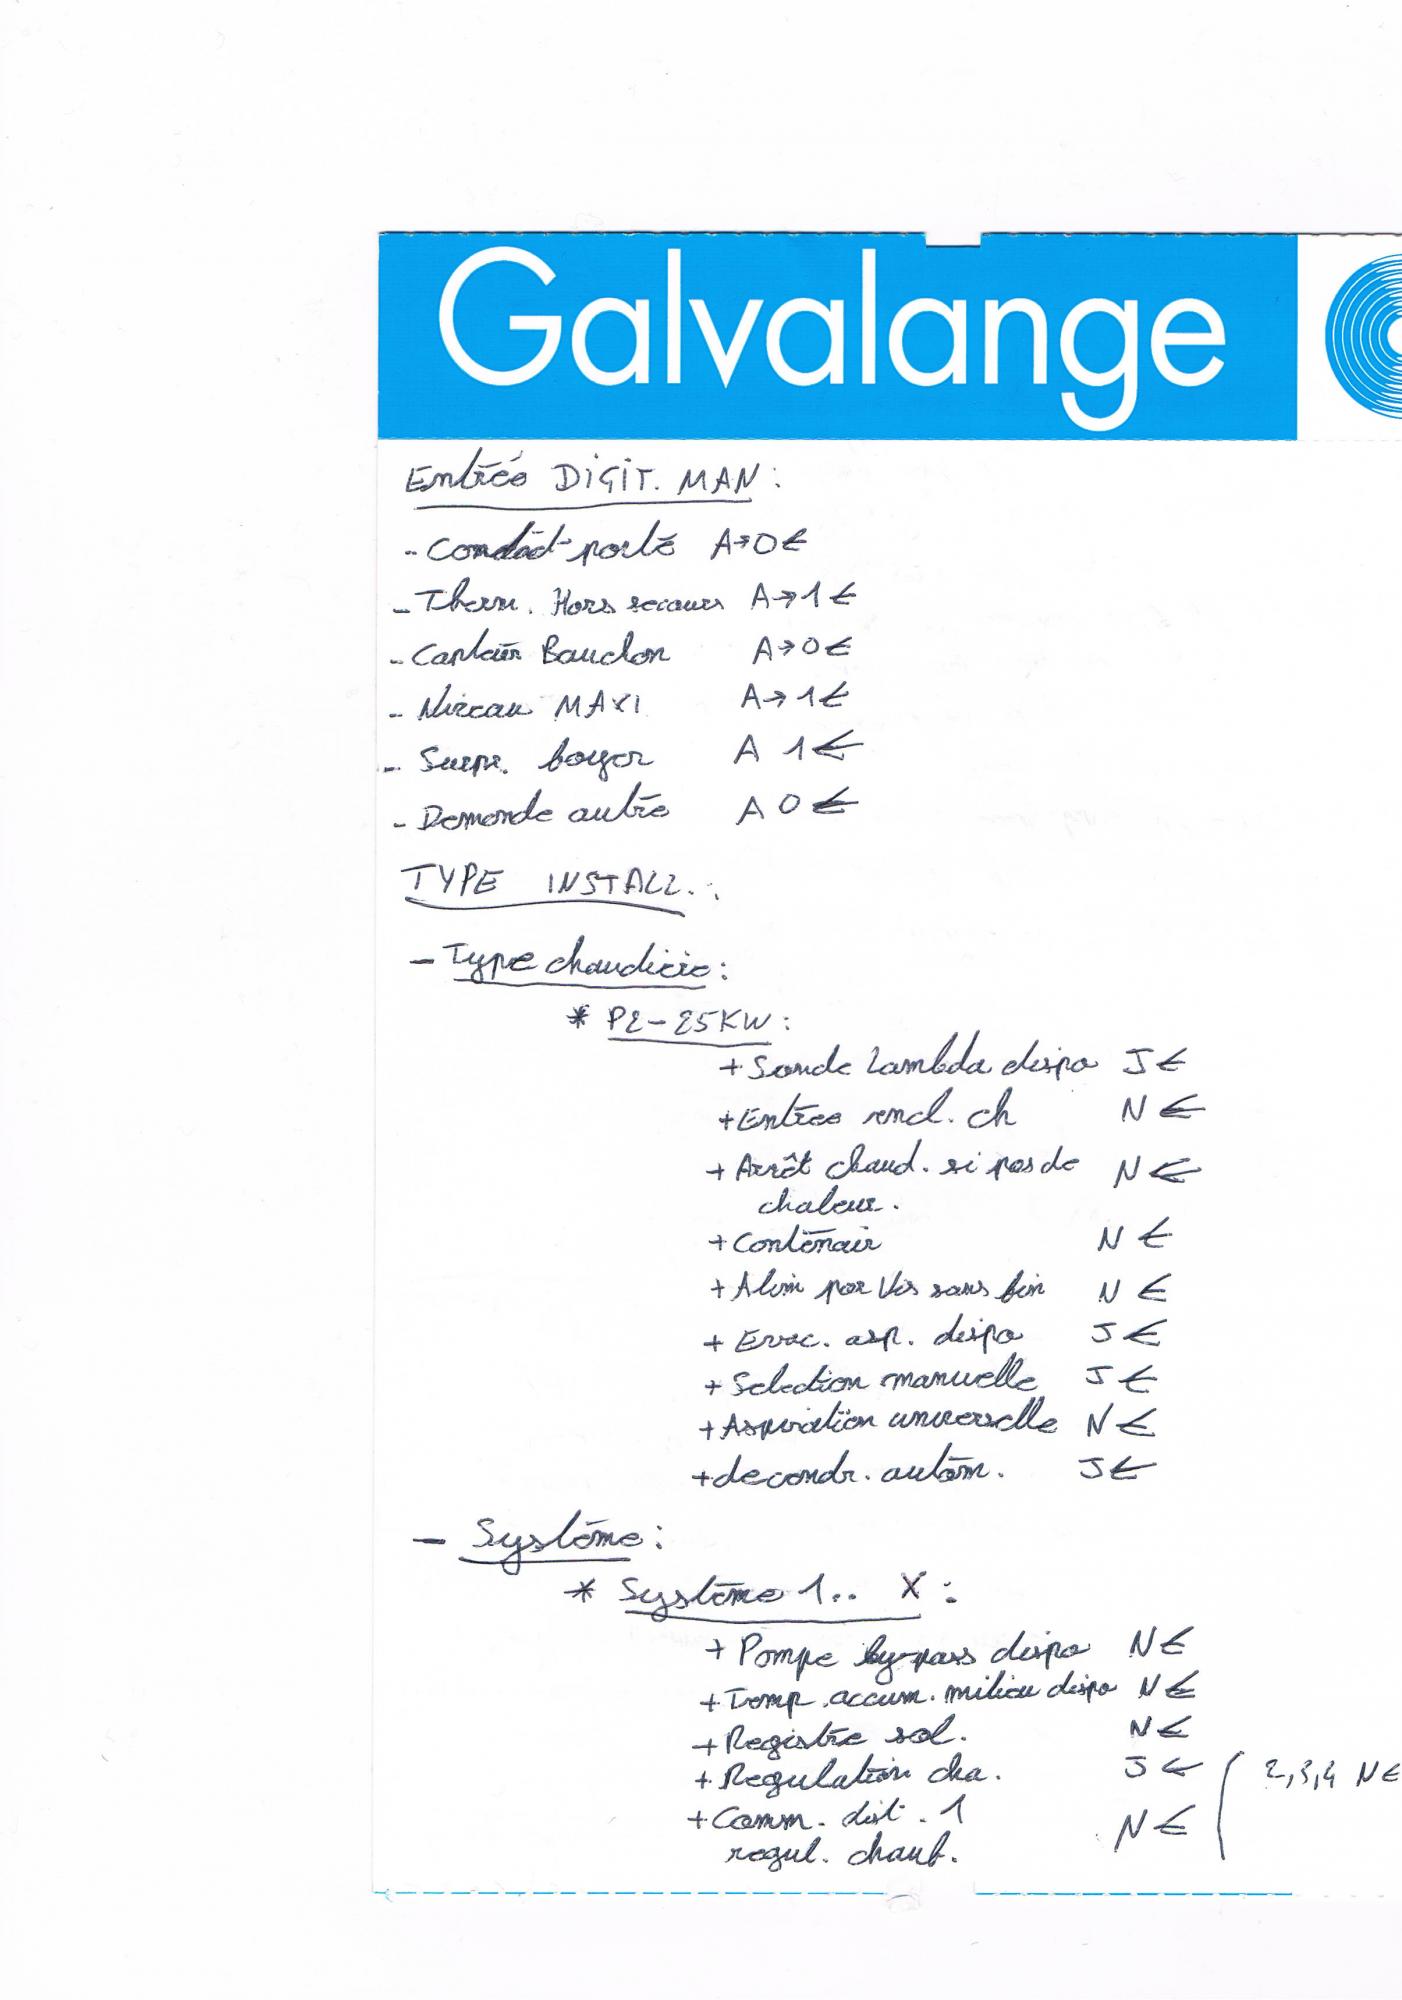 Galvalange
Entrée DIGIT. MAN :
- Contact porte A→0 ←
- Therm. Hors secours A→1 ←
- Capteur Bouchon A→0 ←
- Niveau MAXI A→1 ←
- Surpr. foyer A 1 ←
- Demande autre A 0 ←
TYPE INSTALL. :
- Type chaudière :
* P2-25KW :
+ Sonde Lambda dispo J ←
+ Entrée encl. ch N ←
+ Arrêt chaud. si pas de N ←
chaleur.
+ Contenair N ←
+ Alim par Vis sans fin N ←
+ Evac. asp. dispo J ←
+ Selection manuelle J ←
+ Aspiration universelle N ←
+ decendr. autom. J ←
- Système :
* Système 1.. X :
+ Pompe by-pass dispo N ←
+ Temp. accum. milieu dispo N ←
+ Registre sol. N ←
+ Regulation cha. J ← 2,3,4 N ←
+ Comm. dist. 1 N ←
regul. chauf.